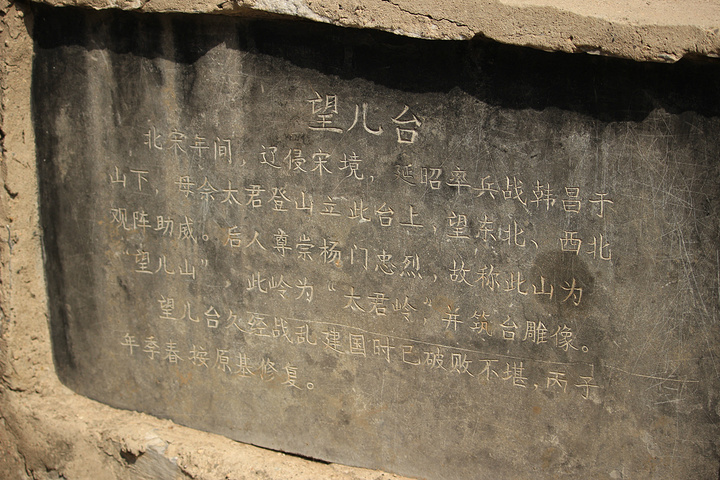 望儿台
北宋年间，辽侵宋境，延昭率兵战韩昌于
山下，母佘太君登山立此台上，望东北、西北
观阵助威。后人尊崇杨门忠烈，故称此山为
“望儿山”，此岭为“太君岭”并筑台雕像。
望儿台久经战乱建国时已破败不堪，丙子
年季春按原基修复。